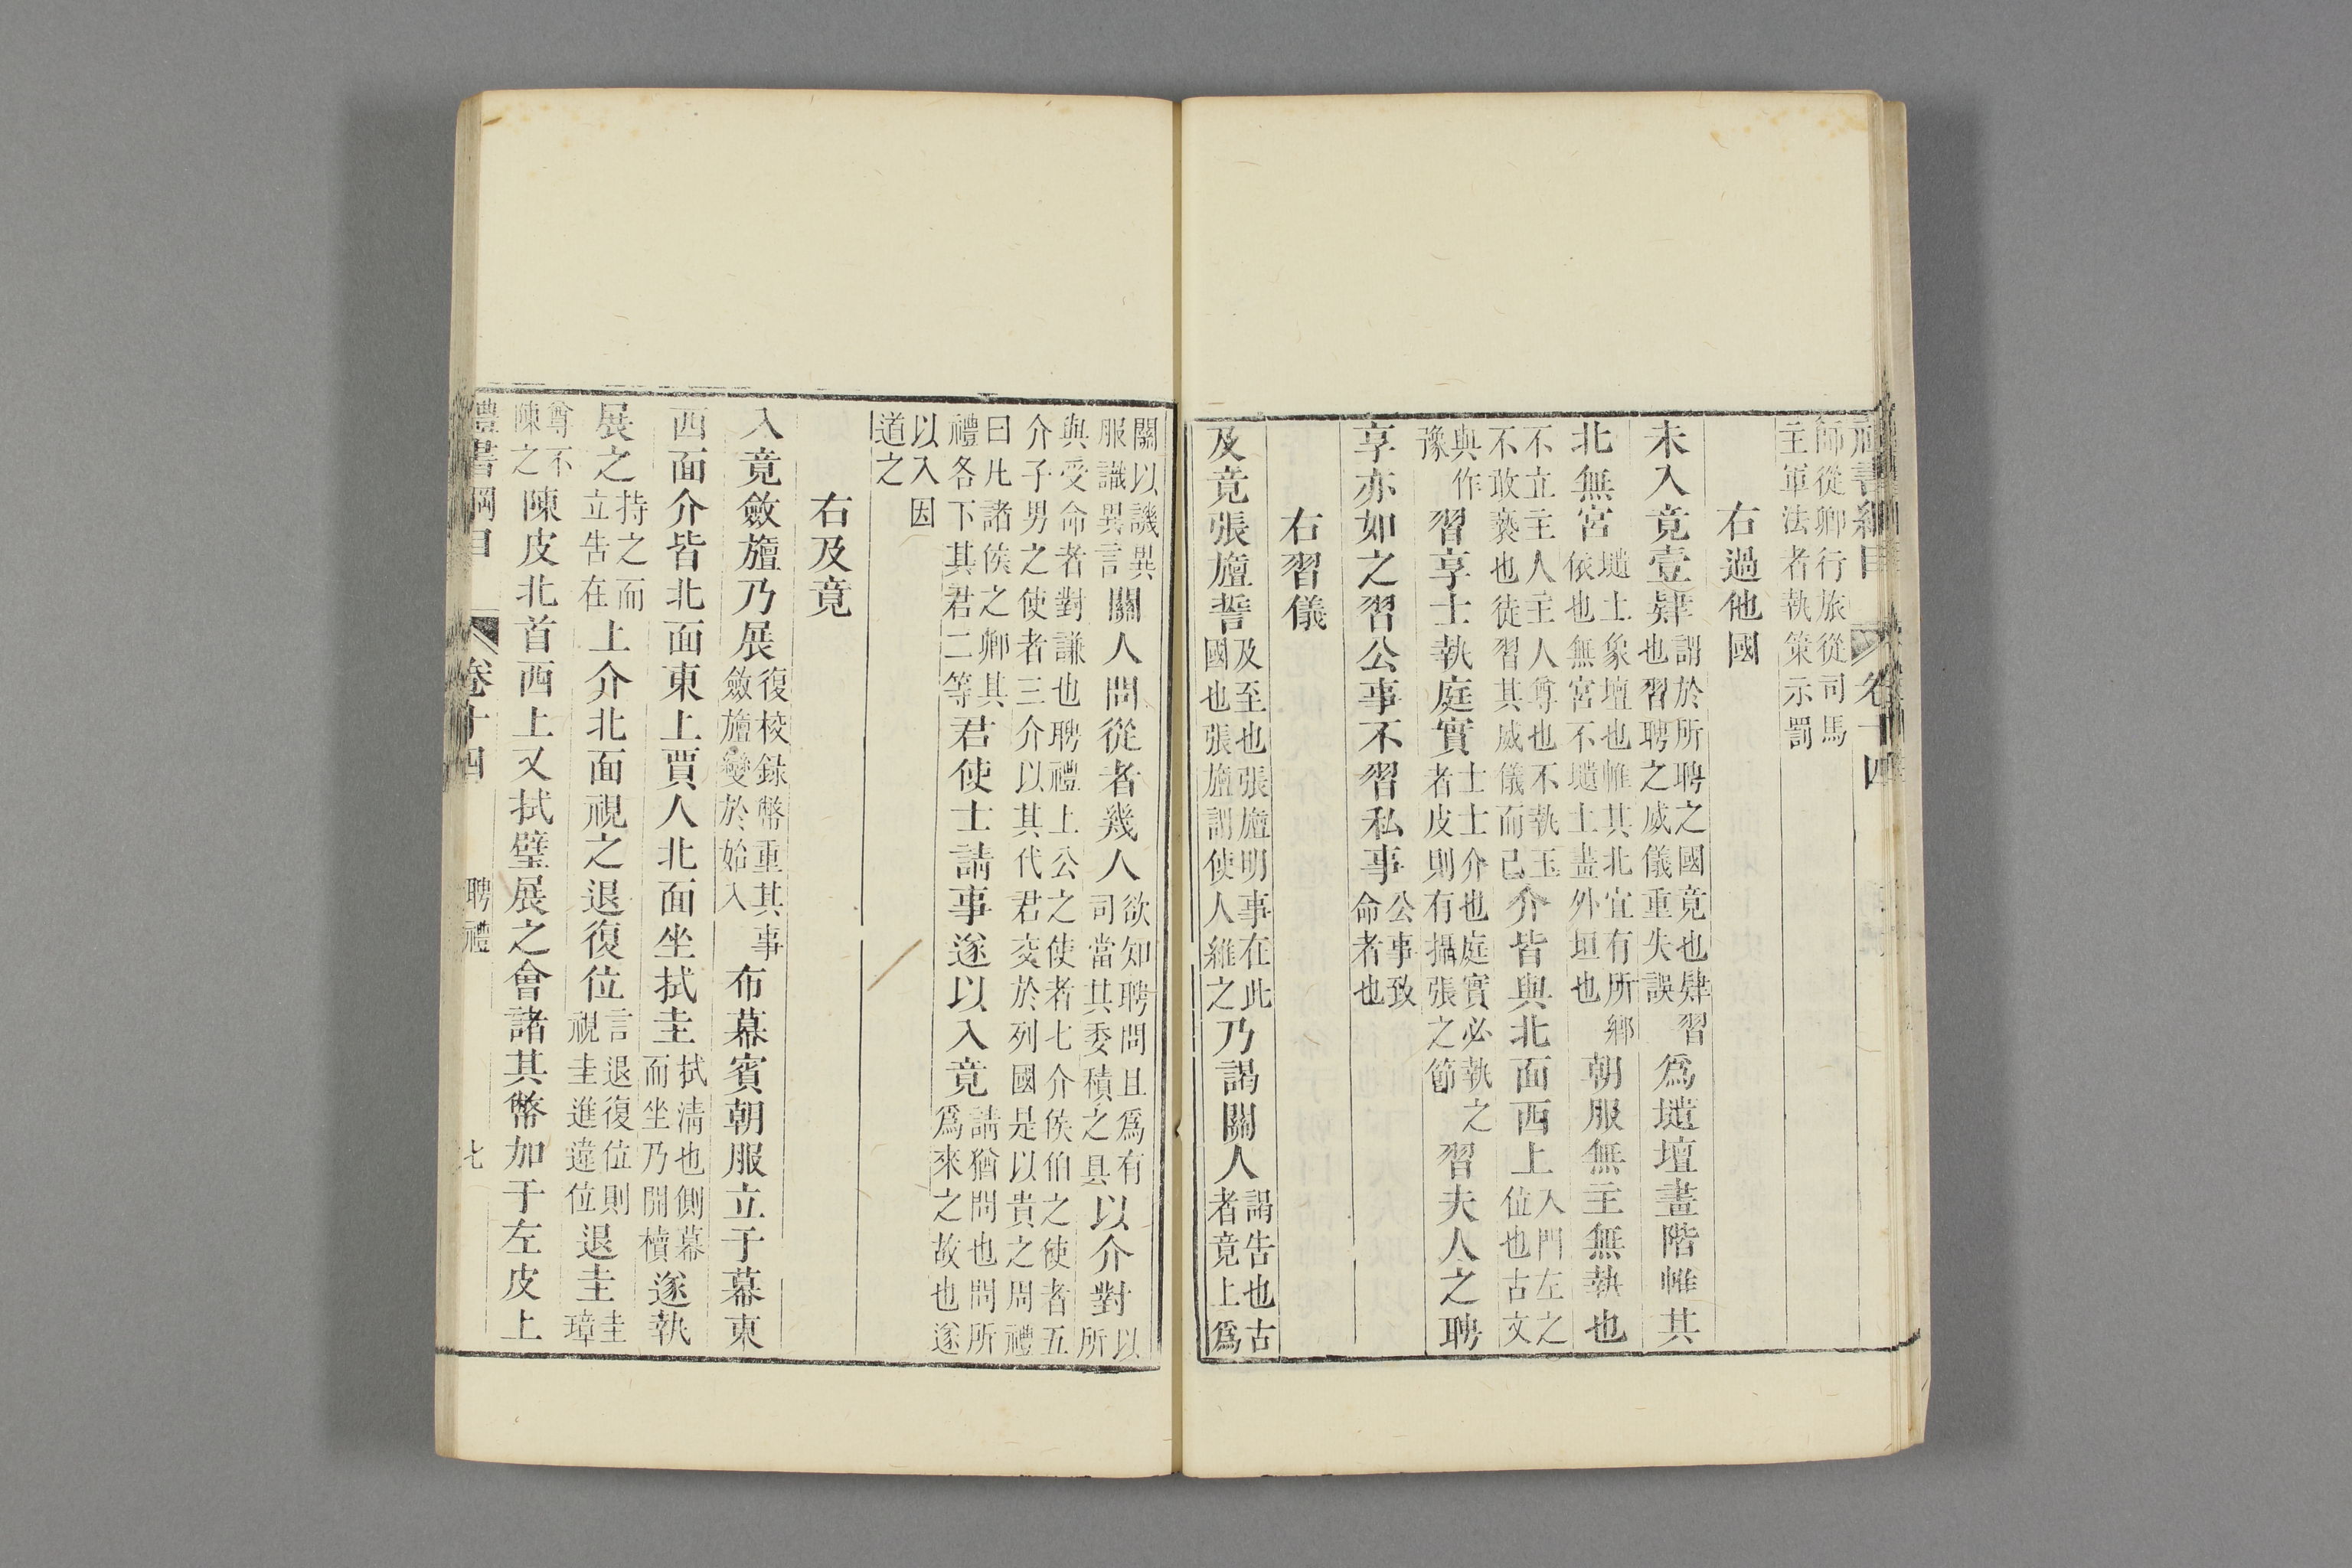 禮書綱目　卷十四
師從卿行旅從司馬
主軍法者執策示罰
右過他國
未入竟壹肄謂於所聘之國竟也肄習也習聘之威儀重失誤爲壝壇畫階帷其
北無宮壝土象壇也帷其北宜有所鄉依也無宮不壝土畫外垣也朝服無主無執也
不立主人主人尊也不執玉不敢褻也徒習其威儀而已介皆與北面西上入門左之位也古文
與作豫習享士執庭實士士介也庭實必執之者皮則有攝張之節習夫人之聘
享亦如之習公事不習私事公事致命者也
右習儀
及竟張旜誓及至也張旜明事在此國也張旜謂使人維之乃謁關人謁告也古者竟上爲
關以譏異服識異言關人問從者幾人欲知聘問且爲有司當其委積之具以介對以所
與受命者對謙也聘禮上公之使者七介侯伯之使者五
介子男之使者三介以其代君交於列國是以貴之周禮
曰凡諸侯之卿其禮各下其君二等君使士請事遂以入竟請猶問也問所爲來之故也遂
以入因道之
右及竟
入竟斂旜乃展復校錄幣重其事斂旜變於始入布幕賓朝服立于幕東
西面介皆北面東上賈人北面坐拭圭拭清也側幕而坐乃開櫝遂執
展之持之而立告在上介北面視之退復位言退復位則視圭進違位退圭圭璋
尊不陳之陳皮北首西上又拭璧展之會諸其幣加于左皮上
禮書綱目　卷十四　聘禮　七